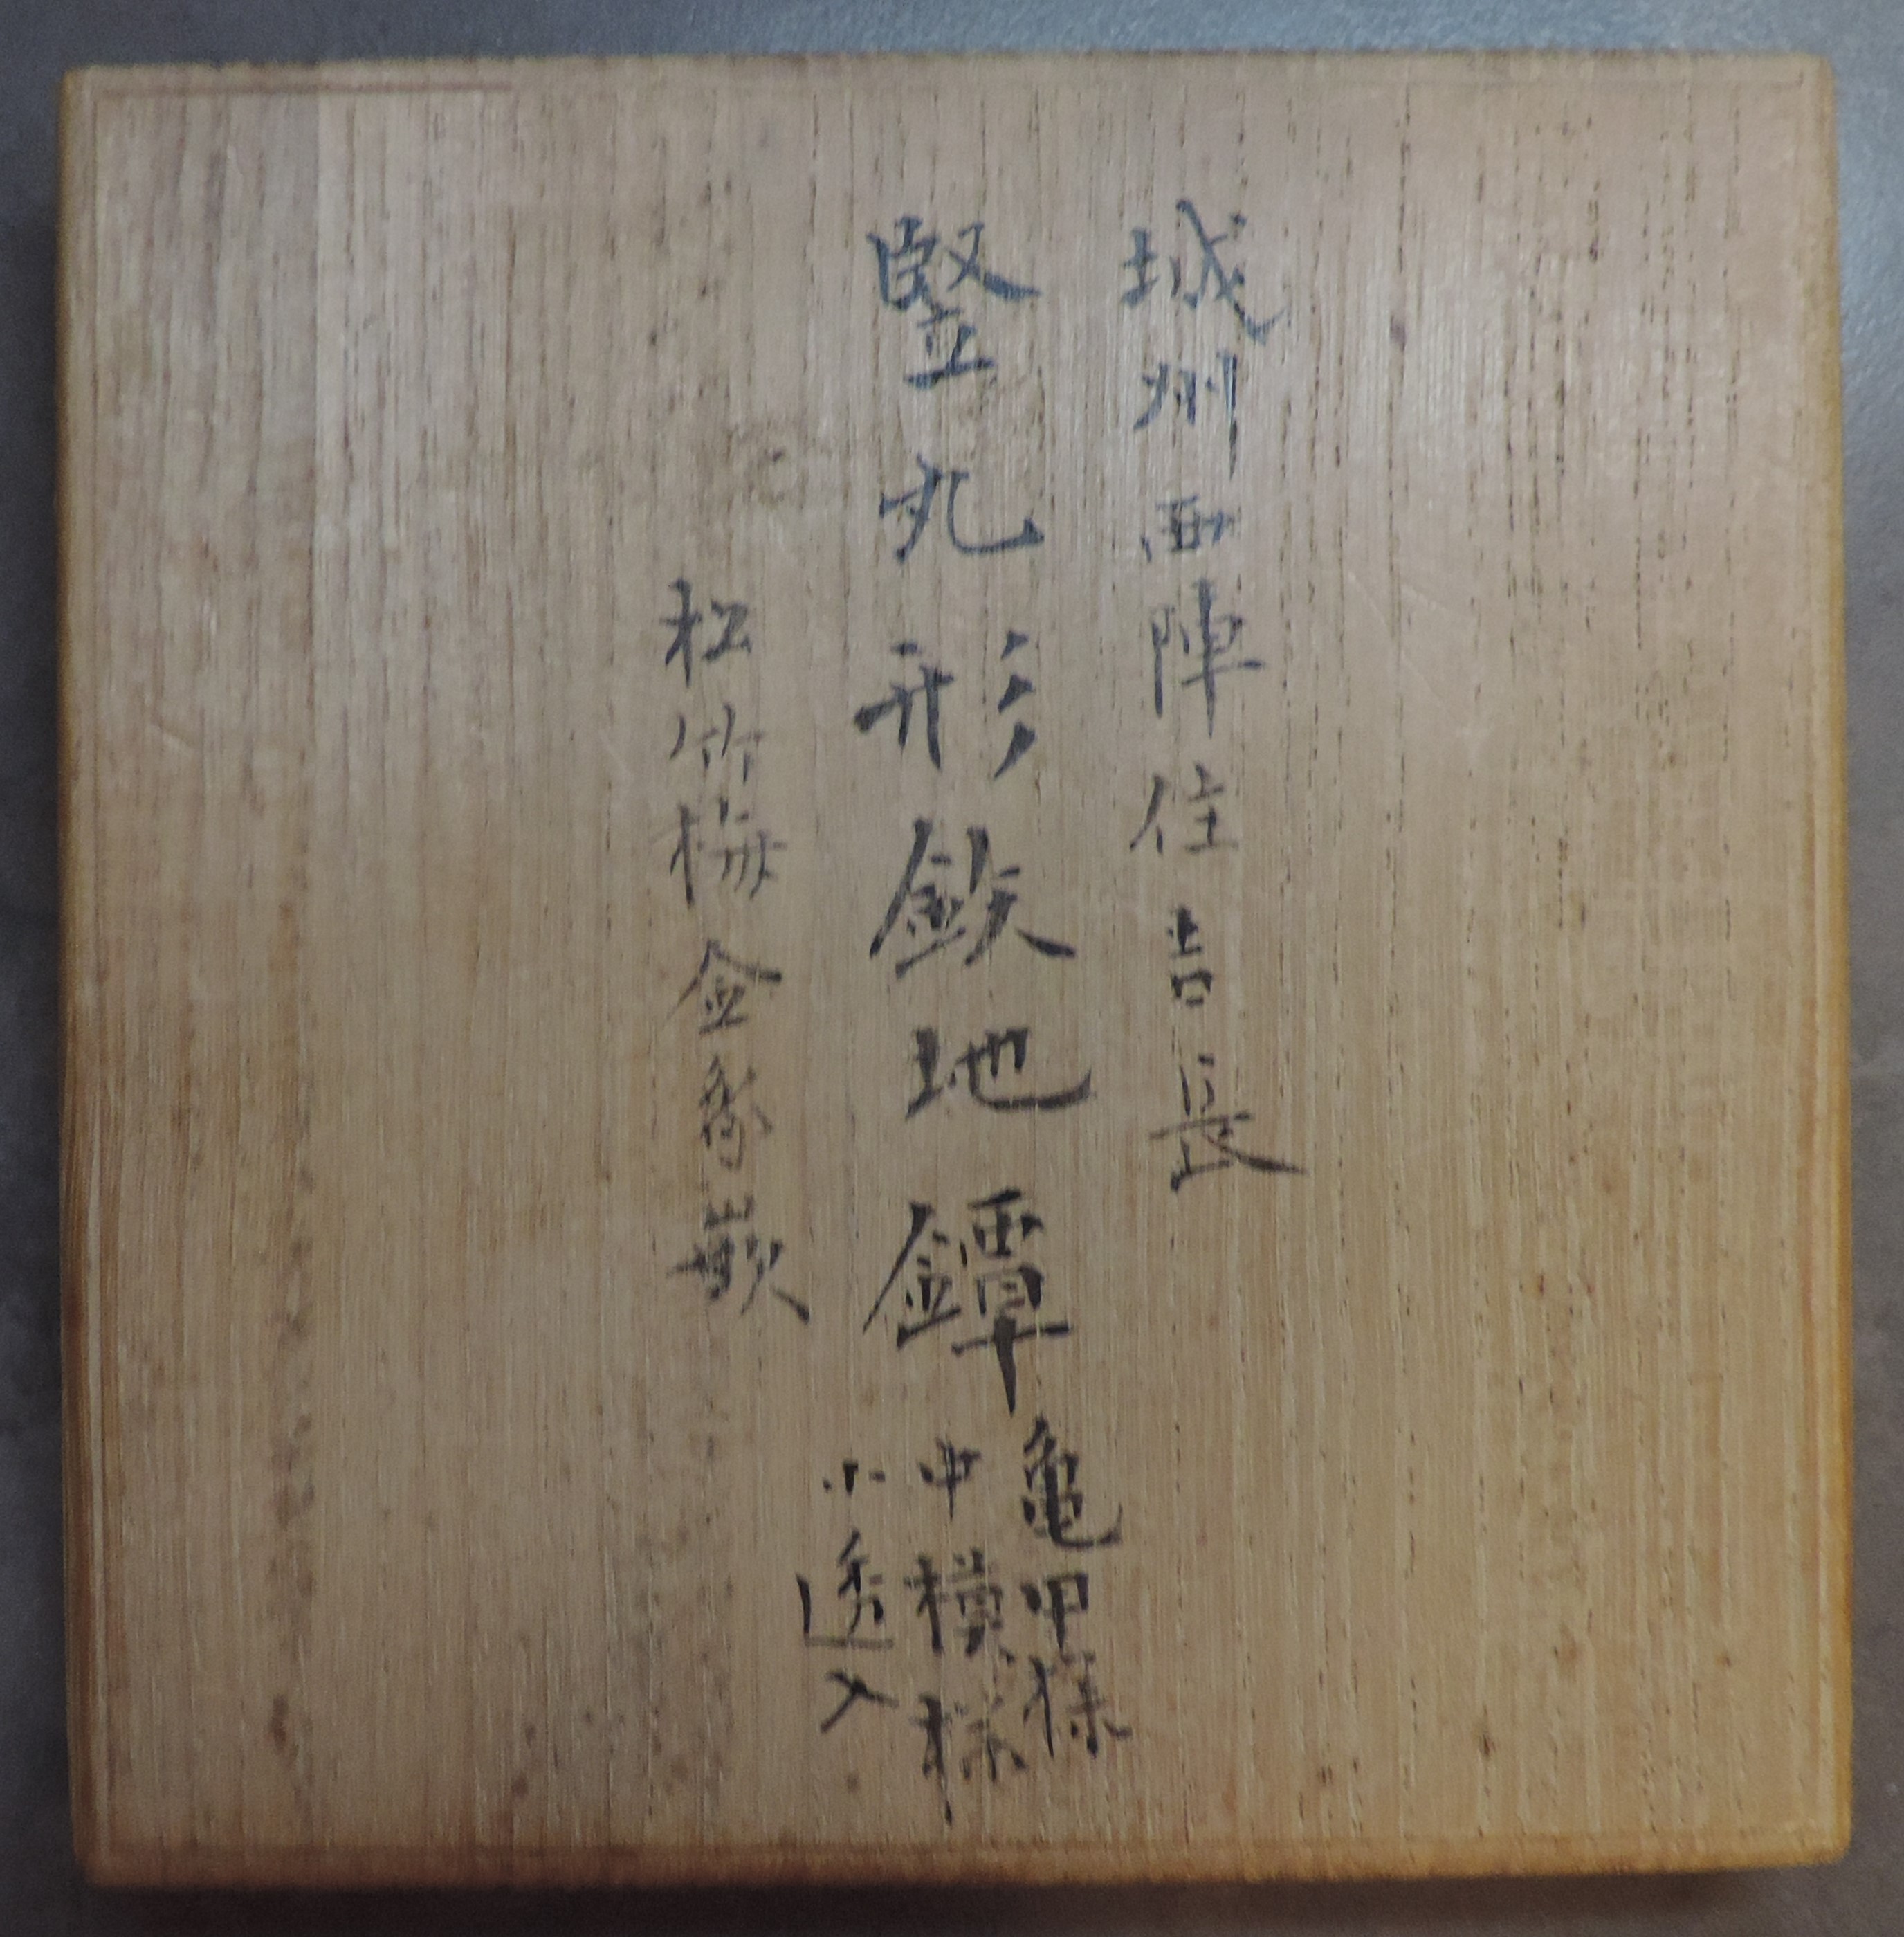 城州西陣住吉長
竪丸形鉄地鐔
亀甲様
中模様
小透入
松竹梅金象嵌